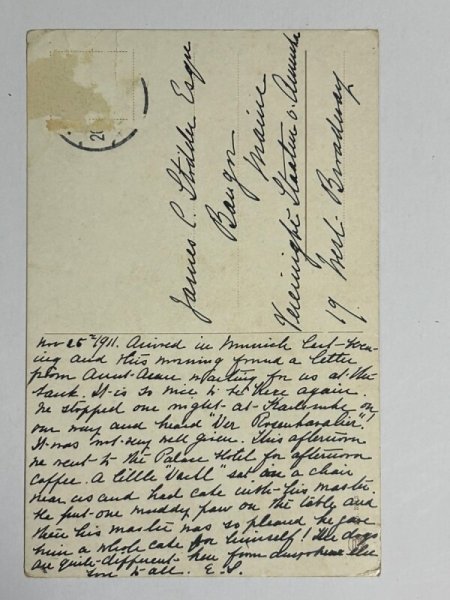 James C. Stodder Esqre
Bangor
Maine
Vereinigte Staaten v. Amerika
19 West Broadway
Nov 25th 1911. Arrived in Munich last even-
ing and this morning found a letter
from Aunt Anne waiting for us at the
bank. It is so nice to be here again.
We stopped one night at Karlsruhe on
our way and heard "Der Rosenkavalier"!
It was not very well given. This afternoon
we went to the Palace Hotel for afternoon
coffee. A little "Dackl" sat on a chair
near us and had cake with his master.
He put one muddy paw on the table and
then his master was so pleased he gave
him a whole cake for himself! The dogs
are quite different here from anywhere else
Love to all. E. S.